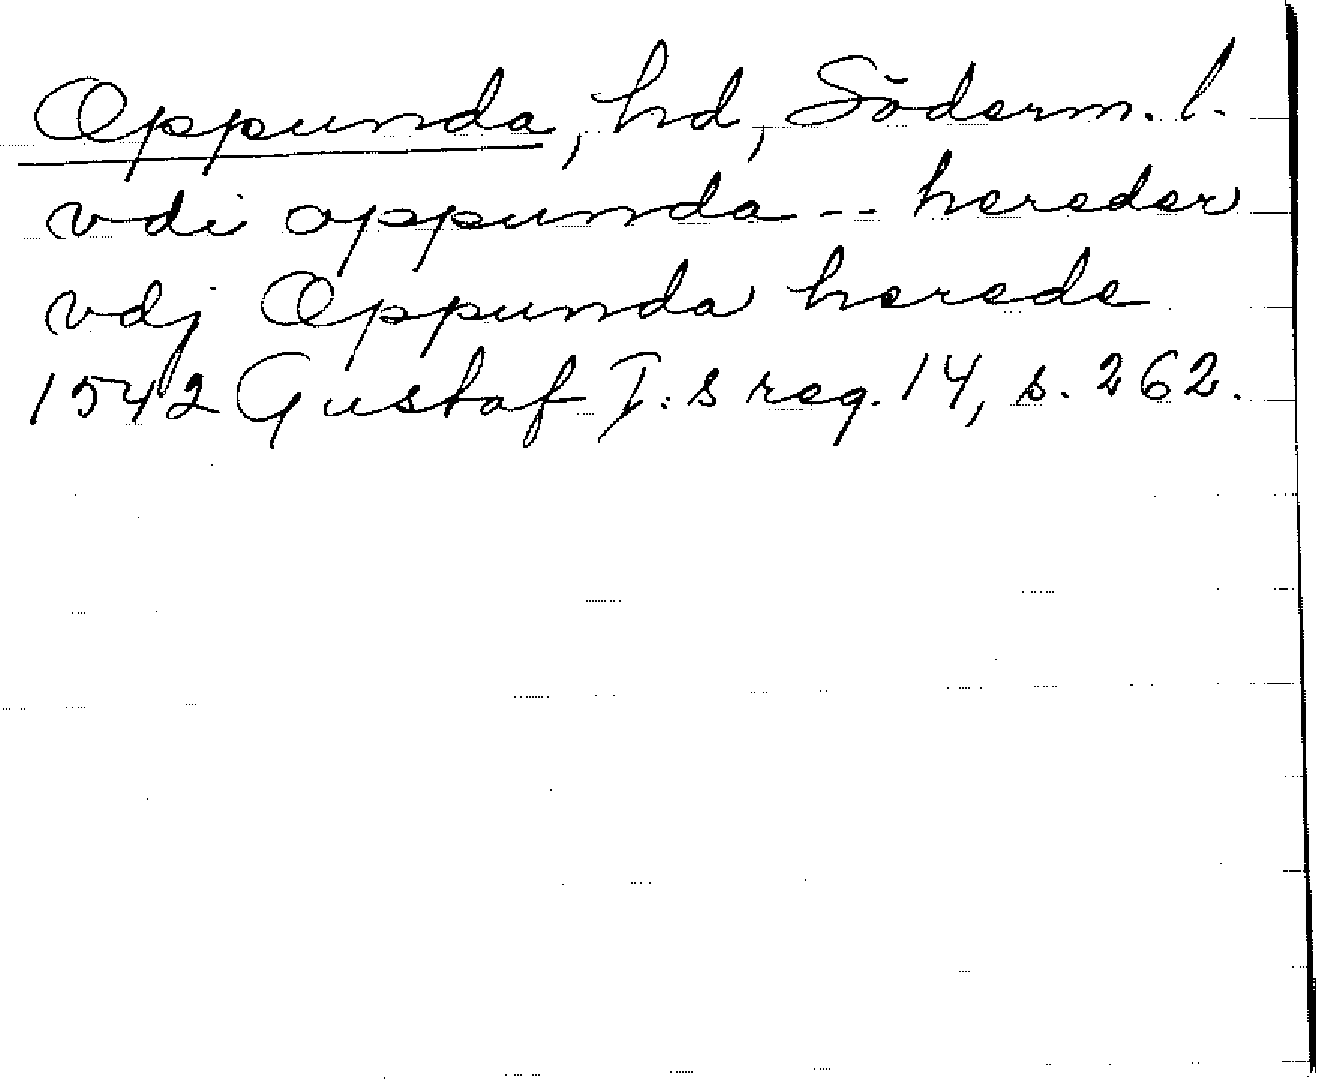 Oppunda, hd, Söderm. l.
vdi oppunda -- hereder
vdj Oppunda herede
1542 Gustaf I:s reg. 14, s. 262.